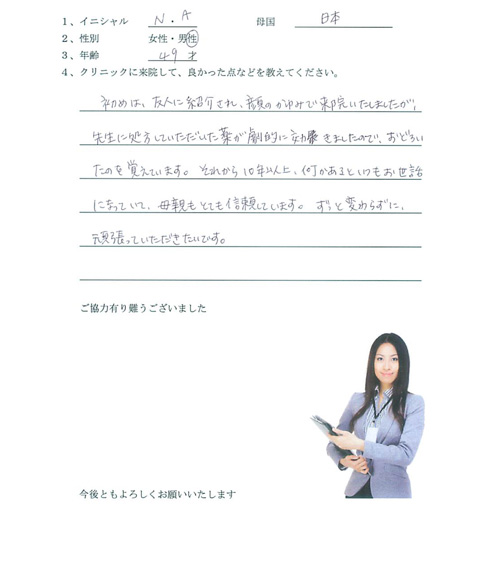 1、イニシャル N . A 母国 日本
2、性別 女性・男性
3、年齢 49 才
4、クリニックに来院して、良かった点などを教えてください。
初めは、友人に紹介され、顔のかゆみで来院いたしましたが、
先生に処方していただいた薬が劇的に効きましたので、おどろい
たのを覚えています。それから10年以上、何かあるといつもお世話
になっていて、母親もとても信頼しています。ずっと変わらずに、
頑張っていただきたいです。
ご協力有り難うございました
今後ともよろしくお願いいたします